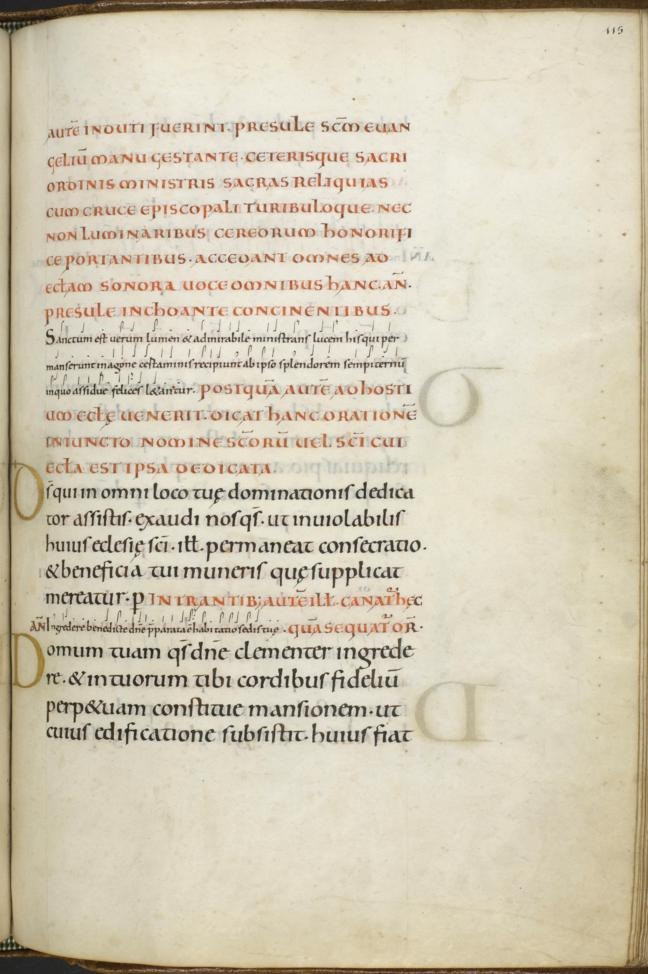 115
AUTĒ INDUTI FUERINT· PRESULE SCM̄ EUAN
GELIŪ MANU GESTANTE· CETERISQUE SACRI
ORDINIS MINISTRIS SACRAS RELIQUIAS
CUM CRUCE EPISCOPALI TURIBULOQUE· NEC
NON LUMINARIBUS CEREORUM HONORIFI
CE PORTANTIBUS· ACCEDANT OMNES AD
ECLAM SONORA UOCE OMNIBUS HANC· AN̄·
PRESULE INCHOANTE CONCINENTIBUS·
Sanctum est uerum lumen & admirabile ministrans lucem his qui per
manserunt in agone certaminis recipiunt ab ipso splendorem sempiternū
in quo assidue felices l&antur· POSTQUĀ AUTĒ AD HOSTI
UM ECLĘ UENERIT· DICAT HANC ORATIONĒ
INIUNCTO NOMINE SCORŪ UEL SCI CUI
ECLA EST IPSA DEDICATA·
Ds̄ qui in omni loco tuę dominationis dedica
tor assistis· exaudi nos qs̄· ut inuiolabilis
huius eclesię sci· ill· permaneat consecratio·
& beneficia tui muneris quę supplicat
mereatur· p INTRANTIB; AUTĒ ILL· CANAT̄ HĘC
AN̄ Ingredere benedicte dn̄e p̄parata ē habitatio sedis tuę· QUĀ SEQUAT̄ OR̄·
Domum tuam qs̄ dn̄e clementer ingrede
re· & in tuorum tibi cordibus fideliū
perp&uam constitue mansionem· ut
cuius edificatione subsistit· huius fiat